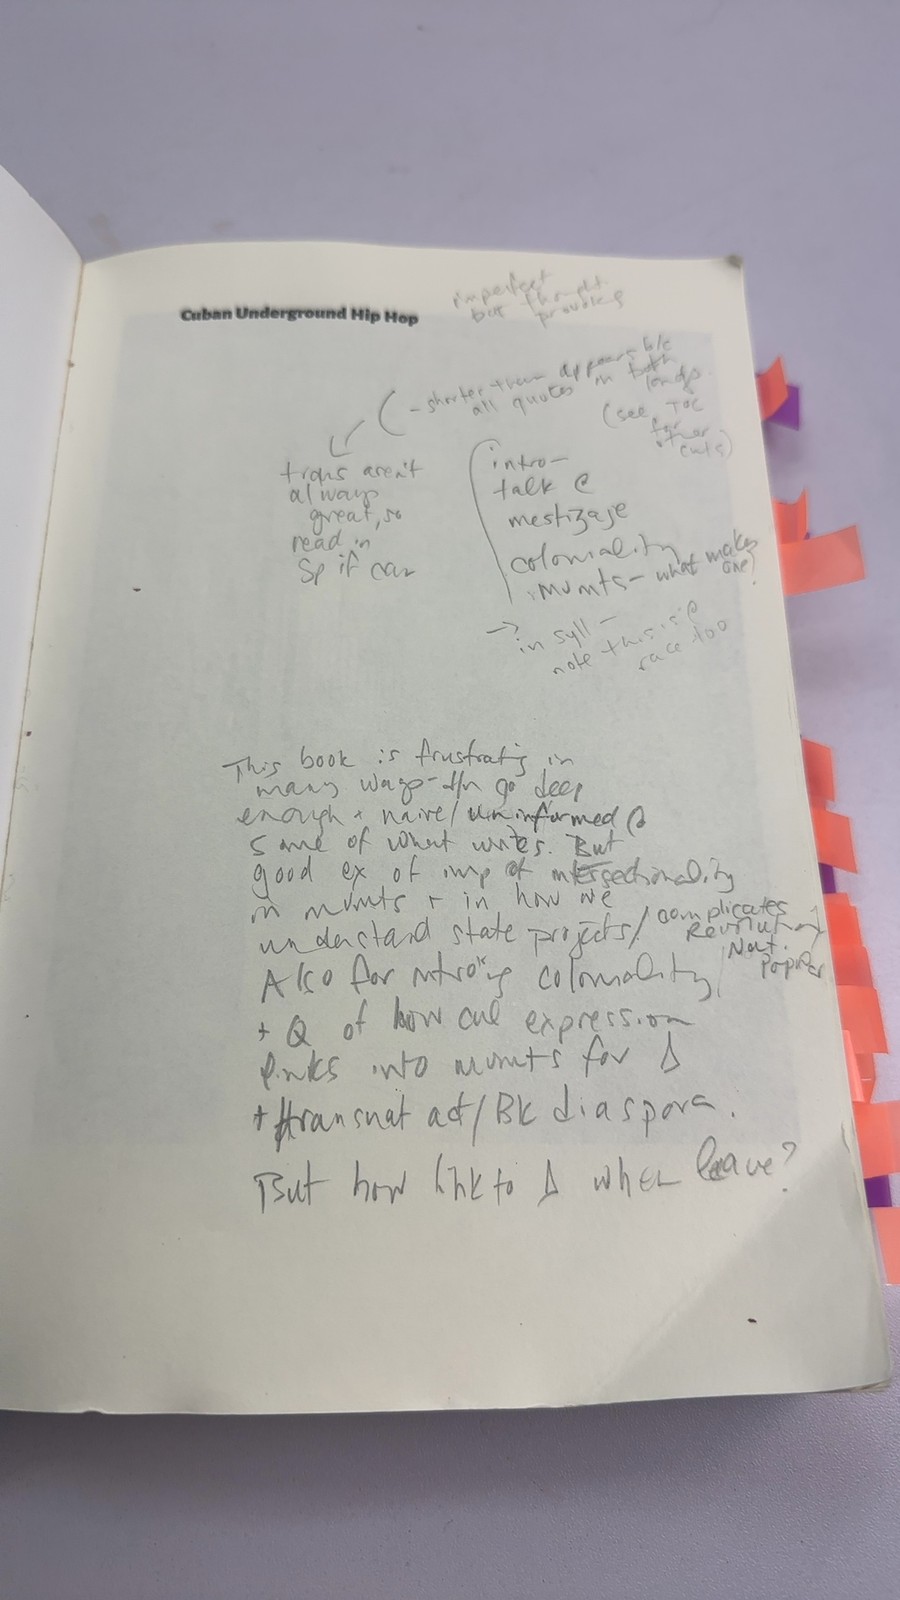 Cuban Underground Hip Hop
imperfect
but thought
provoking
- shorter than appears b/c
all quotes in both
langs.
(see TOC
for
other
cuts)
trans aren't
always
great, so
read in
Sp if can
intro-
talk @
mestizaje
coloniality
mvmts - what makes
one?
→ in syll -
note this is @
race too
This book is frustrating in
many ways - d/n go deep
enough + naive/uninformed @
some of what writes. But
good ex of imp of intersectionality
in mvmts + in how we
understand state projects/complicates
Revolutionary
Nat.
Popular
Also for introing coloniality
+ Q of how cul expression
links into mvmts for Δ
+ transnat act/Bk diaspora.
But how link to Δ when leave?